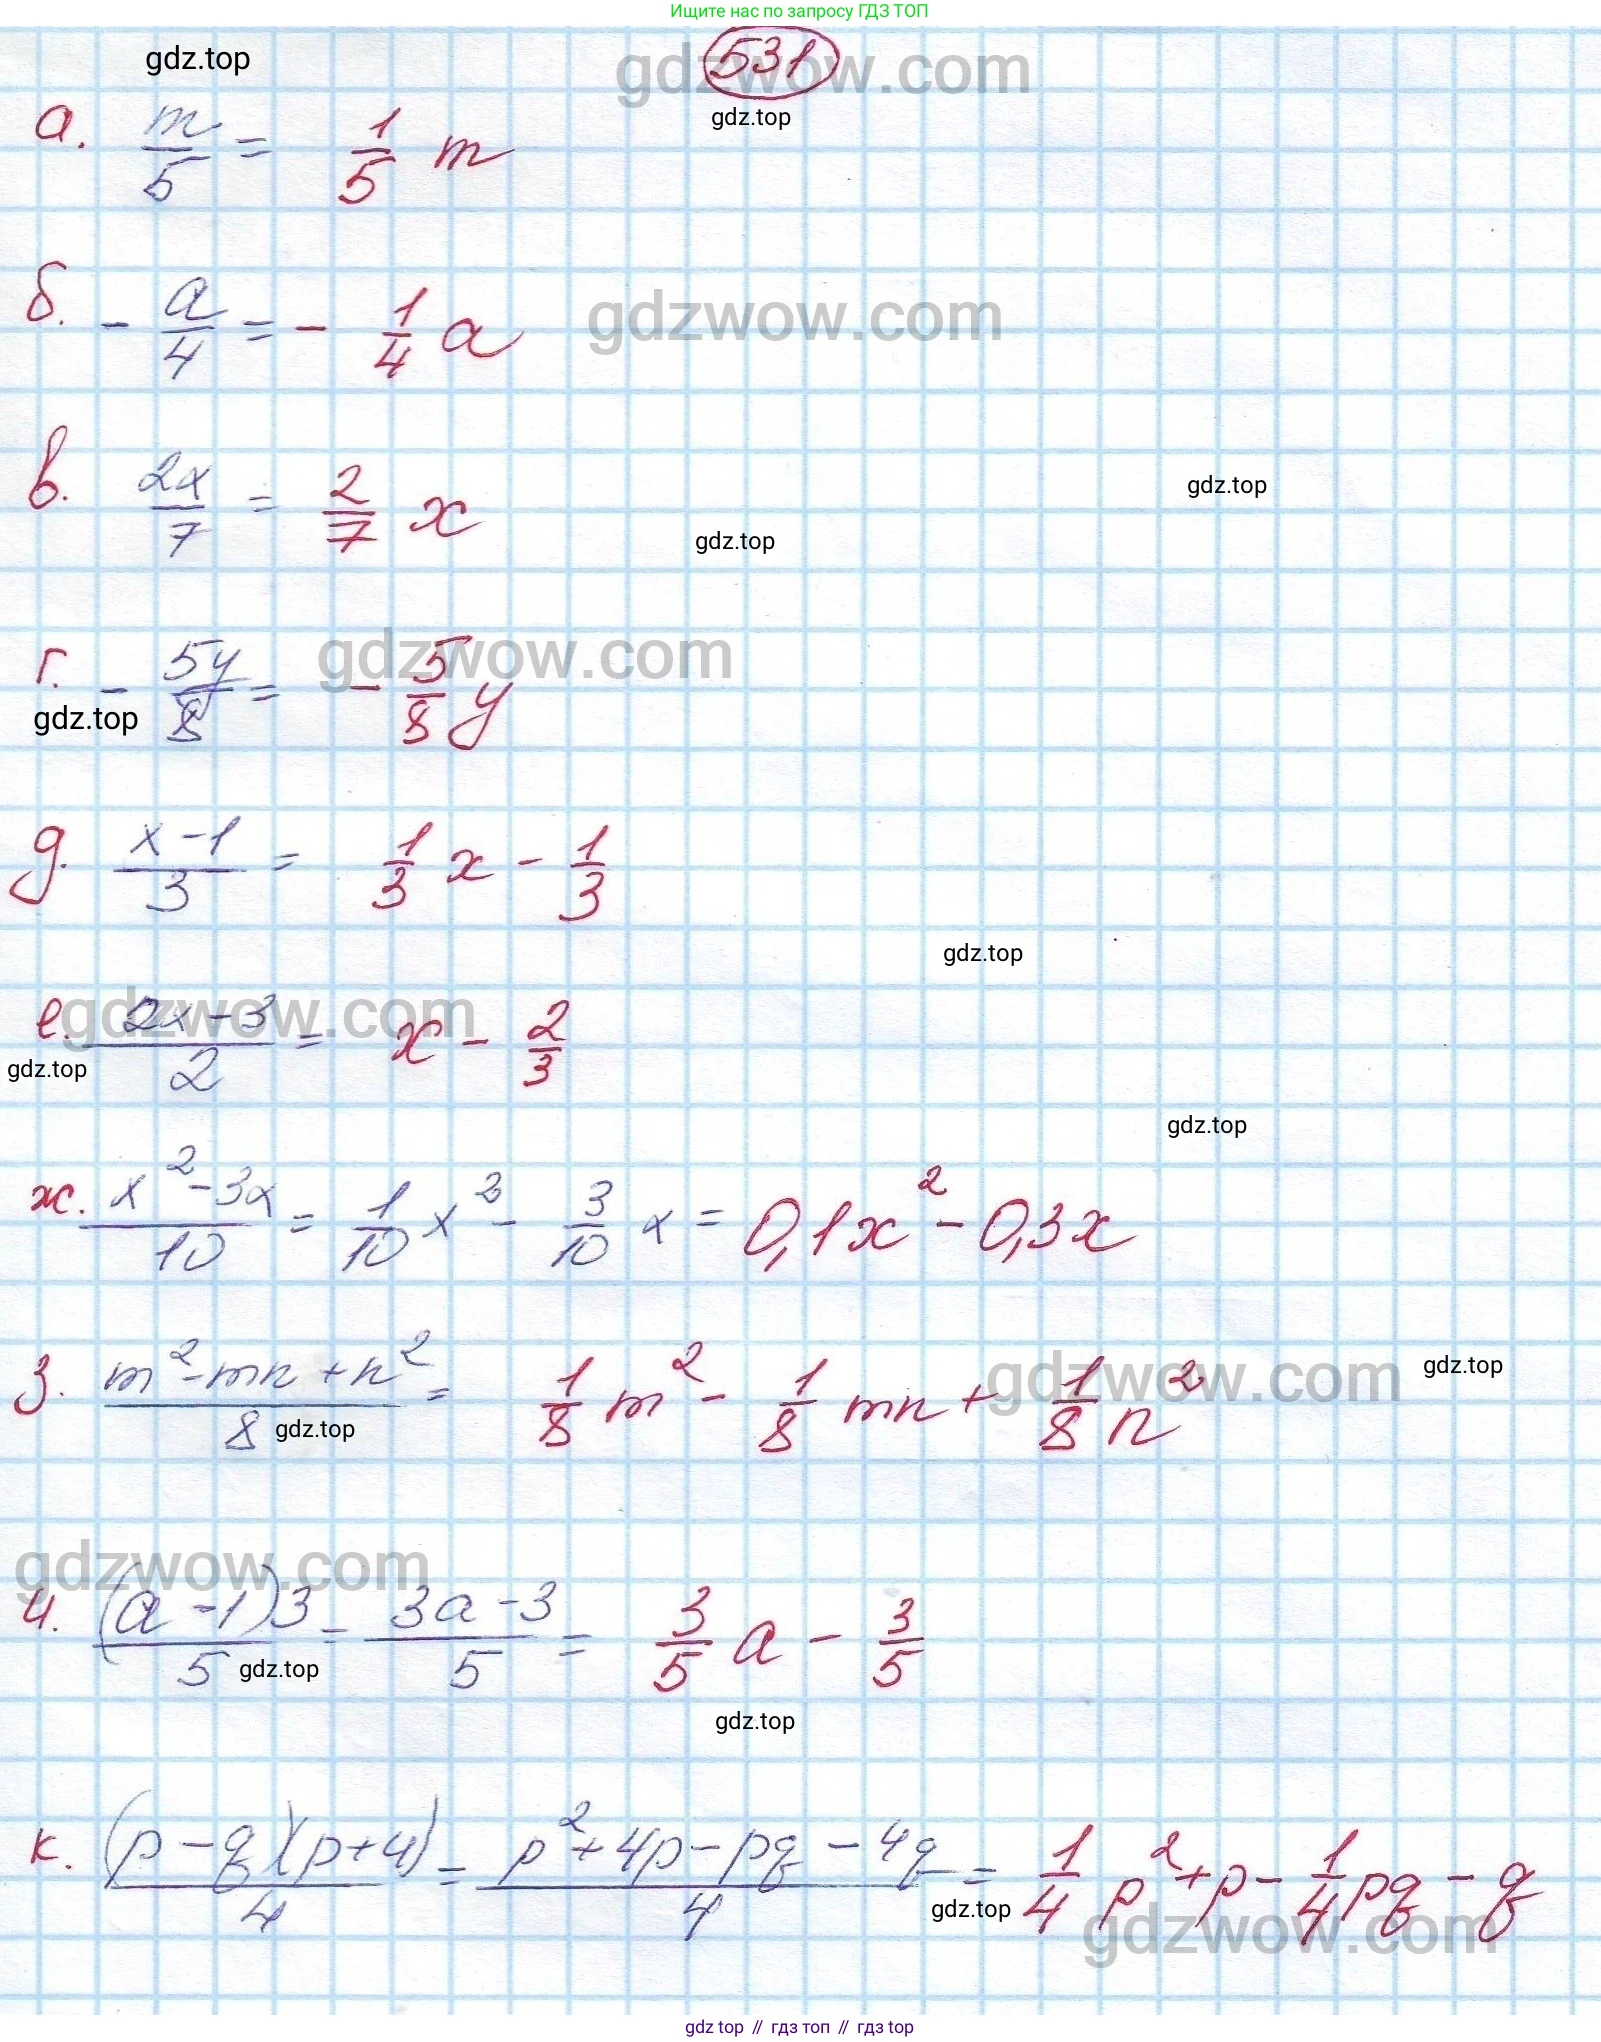 Ищите нас по запросу ГДЗ ТОП
gdz.top
gdzwow.com
531
gdz.top
а. m/5 = 1/5 m
б. - a/4 = - 1/4 a
gdzwow.com
в. 2x/7 = 2/7 x
gdz.top
gdz.top
г. - 5y/8 = - 5/8 y
gdzwow.com
gdz.top
д. (x-1)/3 = 1/3 x - 1/3
gdz.top
gdzwow.com
е. (2x-3)/2 = x - 2/3
gdz.top
gdz.top
ж. (x²-3x)/10 = 1/10 x² - 3/10 x = 0,1x² - 0,3x
з. (m²-mn+n²)/8 = 1/8 m² - 1/8 mn + 1/8 n²
gdzwow.com
gdz.top
gdz.top
gdzwow.com
и. (a-1)3/5 = (3a-3)/5 = 3/5 a - 3/5
gdz.top
gdz.top
к. (p-q)(p+4)/4 = (p²+4p-pq-4q)/4 = 1/4 p² + p - 1/4 pq - q
gdz.top
gdzwow.com
gdz top // гдз топ // гдз top